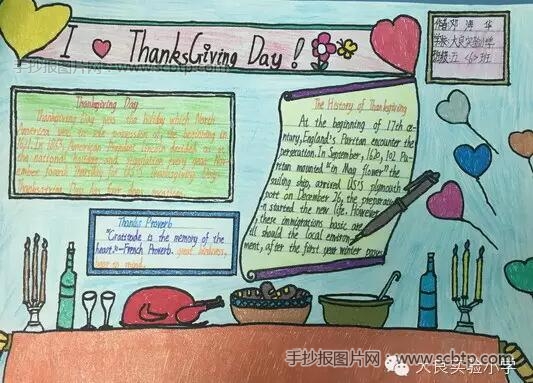 I ThanksGiving Day!
作者:邓
学校:大良实验小学
班级:五 <6>班
手抄报图片网 www.scbtp.com
Thanksgiving Day
Thanksgiving Day was the holiday which North
America used to sole possession of, the beginning in
1621. In 1863, American President Lincoln decided at as
the national holiday and stipulation every year Nov-
ember fourth Thursday for U.S. Thanksgiving Day.
Thanksgiving Day has four days vacations.
The History of Thanksgiving
At the beginning of 17th ce-
ntury, England's Puritan encounter the
persecution. In September, 1620, 102 Pu-
ritan mounted "in May flower" the
sailing ship, arrived US'S plymouth
port on December 26, the preparation
started the new life. However,
these immigrations basic are
all should the local environ-
ment, after the first year winter passes
Thanks Proverb
"Gratitude is the memory of the
heart."—French Proverb. great kindness,
bear to mind.
手抄报图片网 www.scbtp.com
大良实验小学